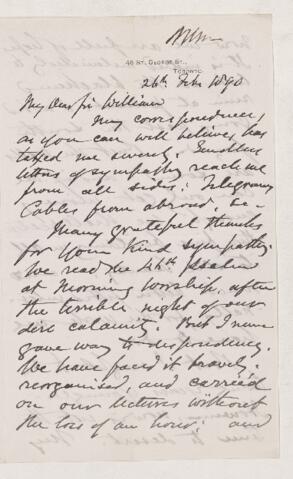 48 ST. GEORGE ST.,
TORONTO.
26th Feb 1890
My dear Sir William
My correspondence,
as you can well believe, has
taxed me severely. Endless
letters of sympathy reach me
from all sides: Telegrams
Cables from abroad, &c—
Many grateful thanks
for your kind sympathy.
We read the 46th Psalm
at Morning Worship, after
the terrible night of our
dire calamity. But I never
gave way to despondency.
We have faced it bravely,
reorganised, and carried
on our lectures without
the loss of an hour: and